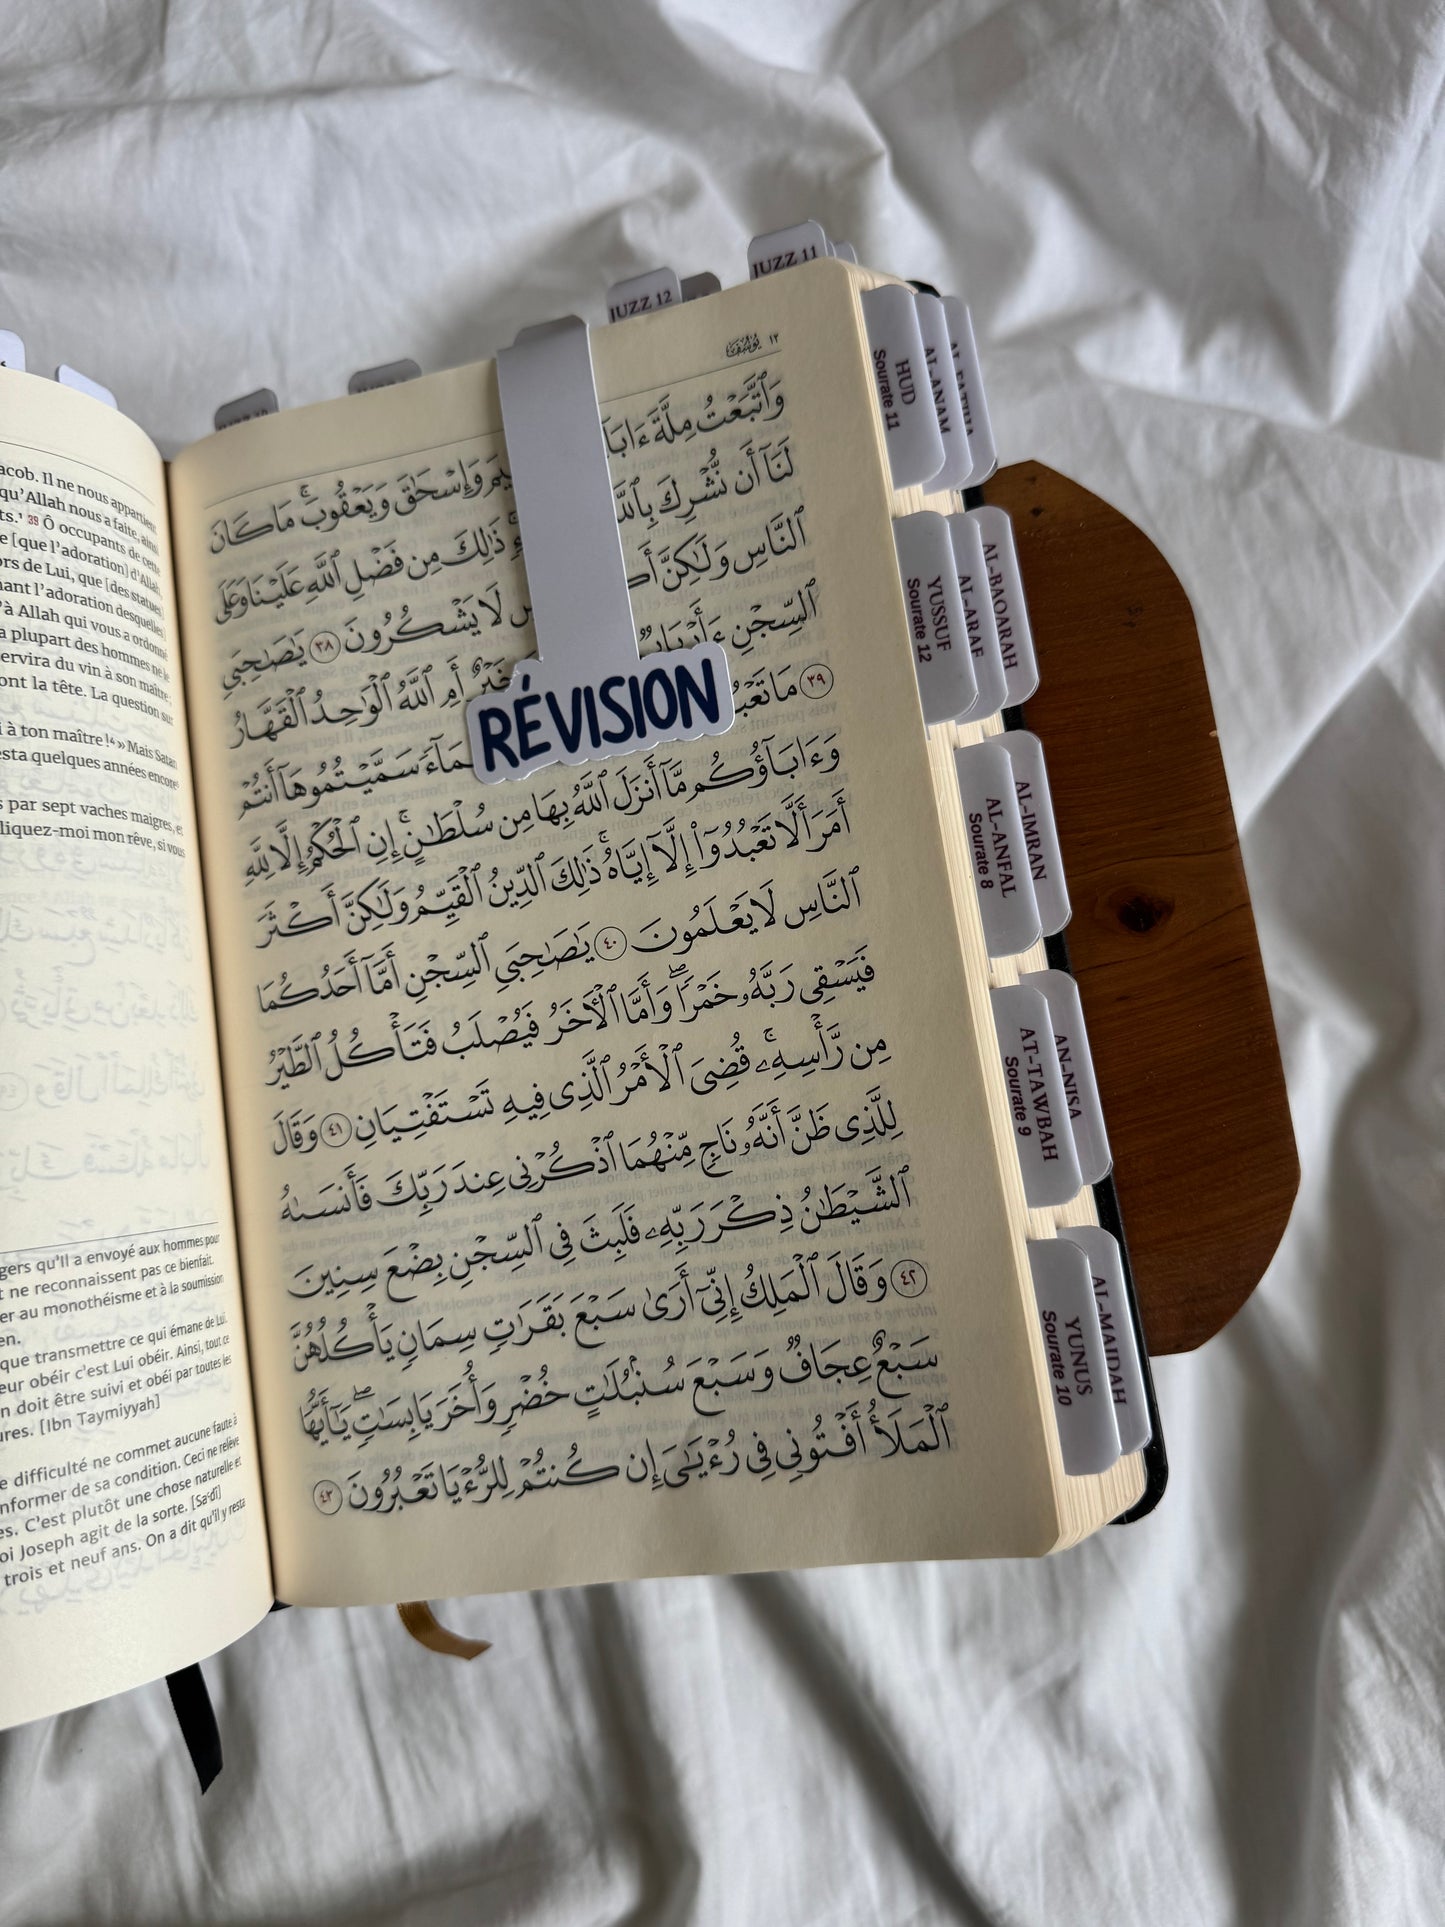 JUZZ 11
JUZZ 12
١٢ يُوسُف
وَٱتَّبَعْتُ مِلَّةَ وَإِسْحَٰقَ وَيَعْقُوبَ ۚ مَا كَانَ
لَنَآ أَن نُّشْرِكَ بِٱللَّهِ ذَٰلِكَ مِن فَضْلِ ٱللَّهِ عَلَيْنَا وَعَلَى
ٱلنَّاسِ وَلَٰكِنَّ لَا يَشْكُرُونَ ٣٨ يَٰصَٰحِبَىِ
ٱلسِّجْنِ خَيْرٌ أَمِ ٱللَّهُ ٱلْوَٰحِدُ ٱلْقَهَّارُ
٣٩ مَا سَمَّيْتُمُوهَآ أَنتُمْ
وَءَابَآؤُكُم مَّآ أَنزَلَ ٱللَّهُ بِهَا مِن سُلْطَٰنٍ ۚ إِنِ ٱلْحُكْمُ إِلَّا لِلَّهِ
أَمَرَ أَلَّا تَعْبُدُوٓا۟ إِلَّآ إِيَّاهُ ۚ ذَٰلِكَ ٱلدِّينُ ٱلْقَيِّمُ وَلَٰكِنَّ أَكْثَرَ
ٱلنَّاسِ لَا يَعْلَمُونَ ٤٠ يَٰصَٰحِبَىِ ٱلسِّجْنِ أَمَّآ أَحَدُكُمَا
فَيَسْقِى رَبَّهُۥ خَمْرًا ۖ وَأَمَّا ٱلْأَخَرُ فَيُصْلَبُ فَتَأْكُلُ ٱلطَّيْرُ
مِن رَّأْسِهِۦ ۚ قُضِىَ ٱلْأَمْرُ ٱلَّذِى فِيهِ تَسْتَفْتِيَانِ ٤١ وَقَالَ
لِلَّذِى ظَنَّ أَنَّهُۥ نَاجٍ مِّنْهُمَا ٱذْكُرْنِى عِندَ رَبِّكَ فَأَنسَىٰهُ
ٱلشَّيْطَٰنُ ذِكْرَ رَبِّهِۦ فَلَبِثَ فِى ٱلسِّجْنِ بِضْعَ سِنِينَ
٤٢ وَقَالَ ٱلْمَلِكُ إِنِّىٓ أَرَىٰ سَبْعَ بَقَرَٰتٍ سِمَانٍ يَأْكُلُهُنَّ
سَبْعٌ عِجَافٌ وَسَبْعَ سُنۢبُلَٰتٍ خُضْرٍ وَأُخَرَ يَابِسَٰتٍ ۖ يَٰٓأَيُّهَا
ٱلْمَلَأُ أَفْتُونِى فِى رُءْيَٰىَ إِن كُنتُمْ لِلرُّءْيَا تَعْبُرُونَ ٤٣
RÉVISION
HUD
Sourate 11
AL-ANAM
YUSSUF
Sourate 12
AL-ARAF
AL-BAQARAH
AL-ANFAL
Sourate 8
AL-IMRAN
AT-TAWBAH
Sourate 9
AN-NISA
YUNUS
Sourate 10
AL-MAIDAH
acob. Il ne nous appartient
qu'Allah nous a faite, ainsi
ts.¹ 39 Ô occupants de cette
e [que l'adoration] d'Allah,
ors de Lui, que [des statues]
nant l'adoration desquelles]
'à Allah qui vous a ordonné
a plupart des hommes ne le
ervira du vin à son maître;
ont la tête. La question sur
i à ton maître !⁴ » Mais Satan
esta quelques années encore
s par sept vaches maigres, et
liquez-moi mon rêve, si vous
gers qu'Il a envoyé aux hommes pour
t ne reconnaissent pas ce bienfait.
er au monothéisme et à la soumission
en.
que transmettre ce qui émane de Lui.
eur obéir c'est Lui obéir. Ainsi, tout ce
n doit être suivi et obéi par toutes les
ures. [Ibn Taymiyyah]
e difficulté ne commet aucune faute à
nformer de sa condition. Ceci ne relève
es. C'est plutôt une chose naturelle et
oi Joseph agit de la sorte. [Sa'dî]
trois et neuf ans. On a dit qu'il y resta